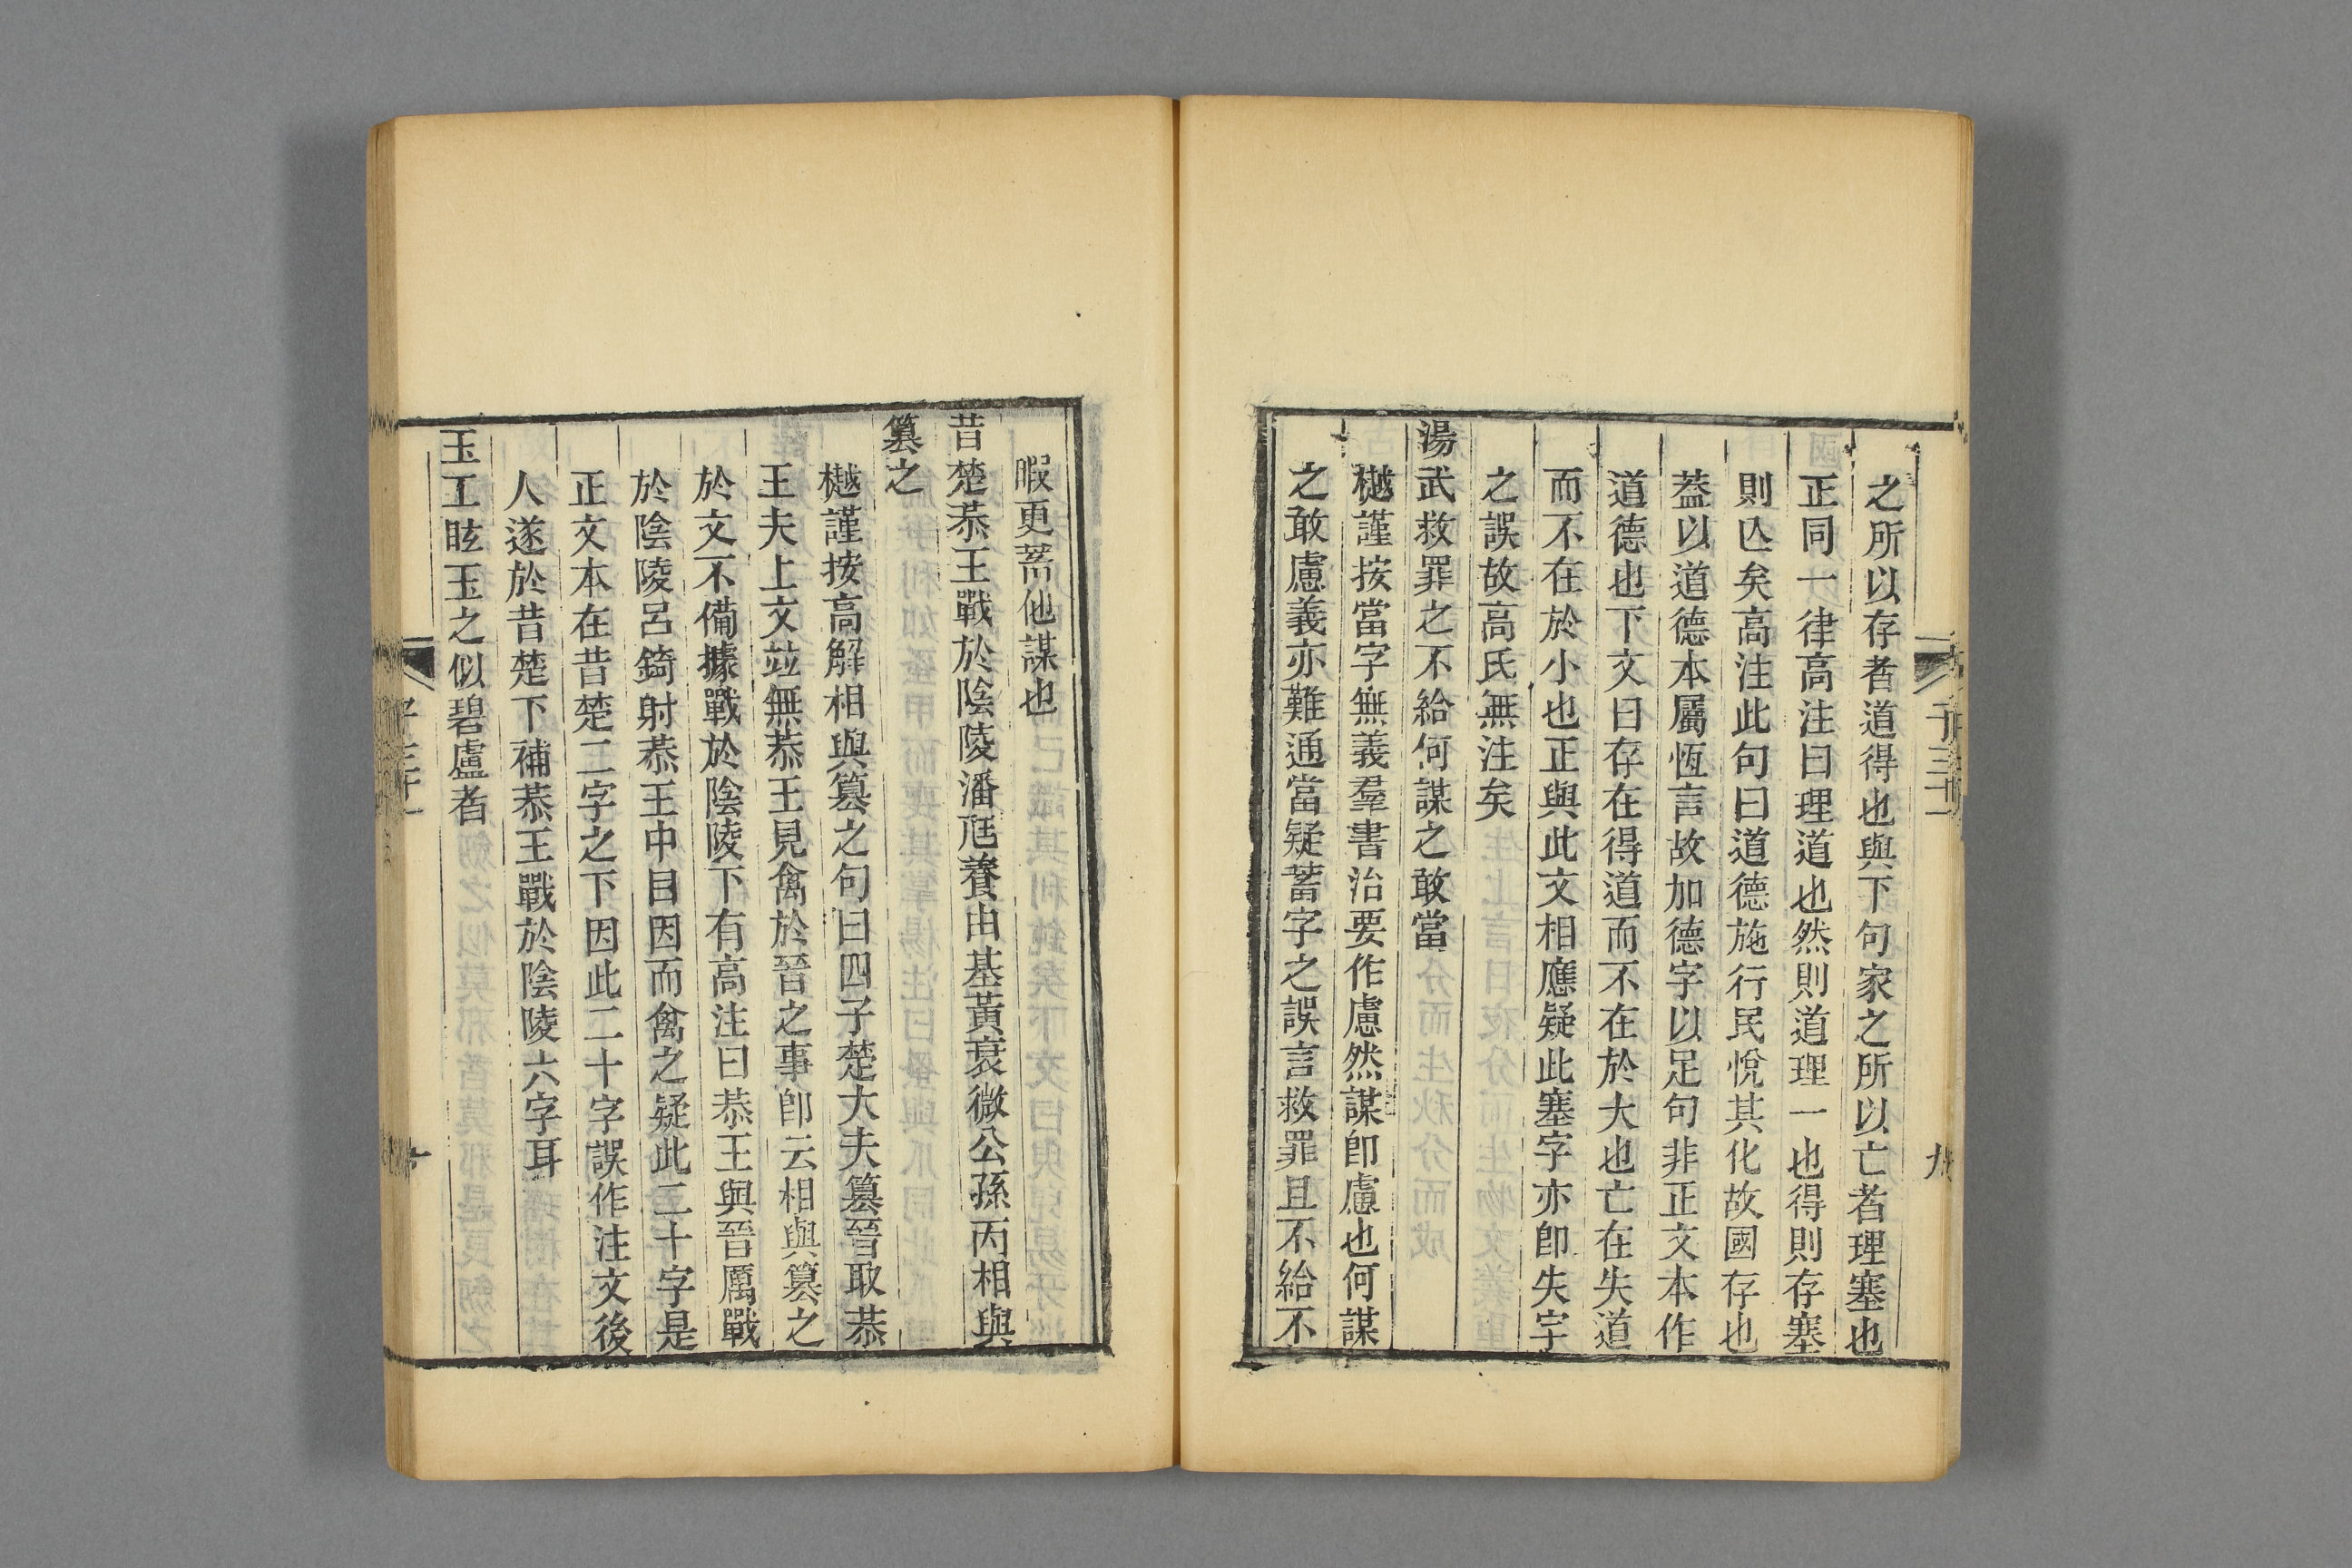 之所以存者道得也與下句家之所以亡者理塞也
正同一律高注曰理道也然則道理一也得則存塞
則亾矣高注此句曰道德施行民悅其化故國存也
葢以道德本屬恆言故加德字以足句非正文本作
道德也下文曰存在得道而不在於大也亡在失道
而不在於小也正與此文相應疑此塞字亦卽失字
之誤故高氏無注矣
湯武救罪之不給何謀之敢當
樾謹按當字無義羣書治要作慮然謀卽慮也何謀
之敢慮義亦難通當疑蓄字之誤言救罪且不給不
九
暇更蓄他謀也
昔楚恭王戰於陰陵潘尫養由基黃衰微公孫丙相與
篡之
樾謹按高解相與篡之句曰四子楚大夫篡晉取恭
王夫上文竝無恭王見禽於晉之事卽云相與篡之
於文不備據戰於陰陵下有高注曰恭王與晉厲戰
於陰陵呂錡射恭王中目因而禽之疑此二十字是
正文本在昔楚二字之下因此二十字誤作注文後
人遂於昔楚下補恭王戰於陰陵六字耳
玉工眩玉之似碧盧者